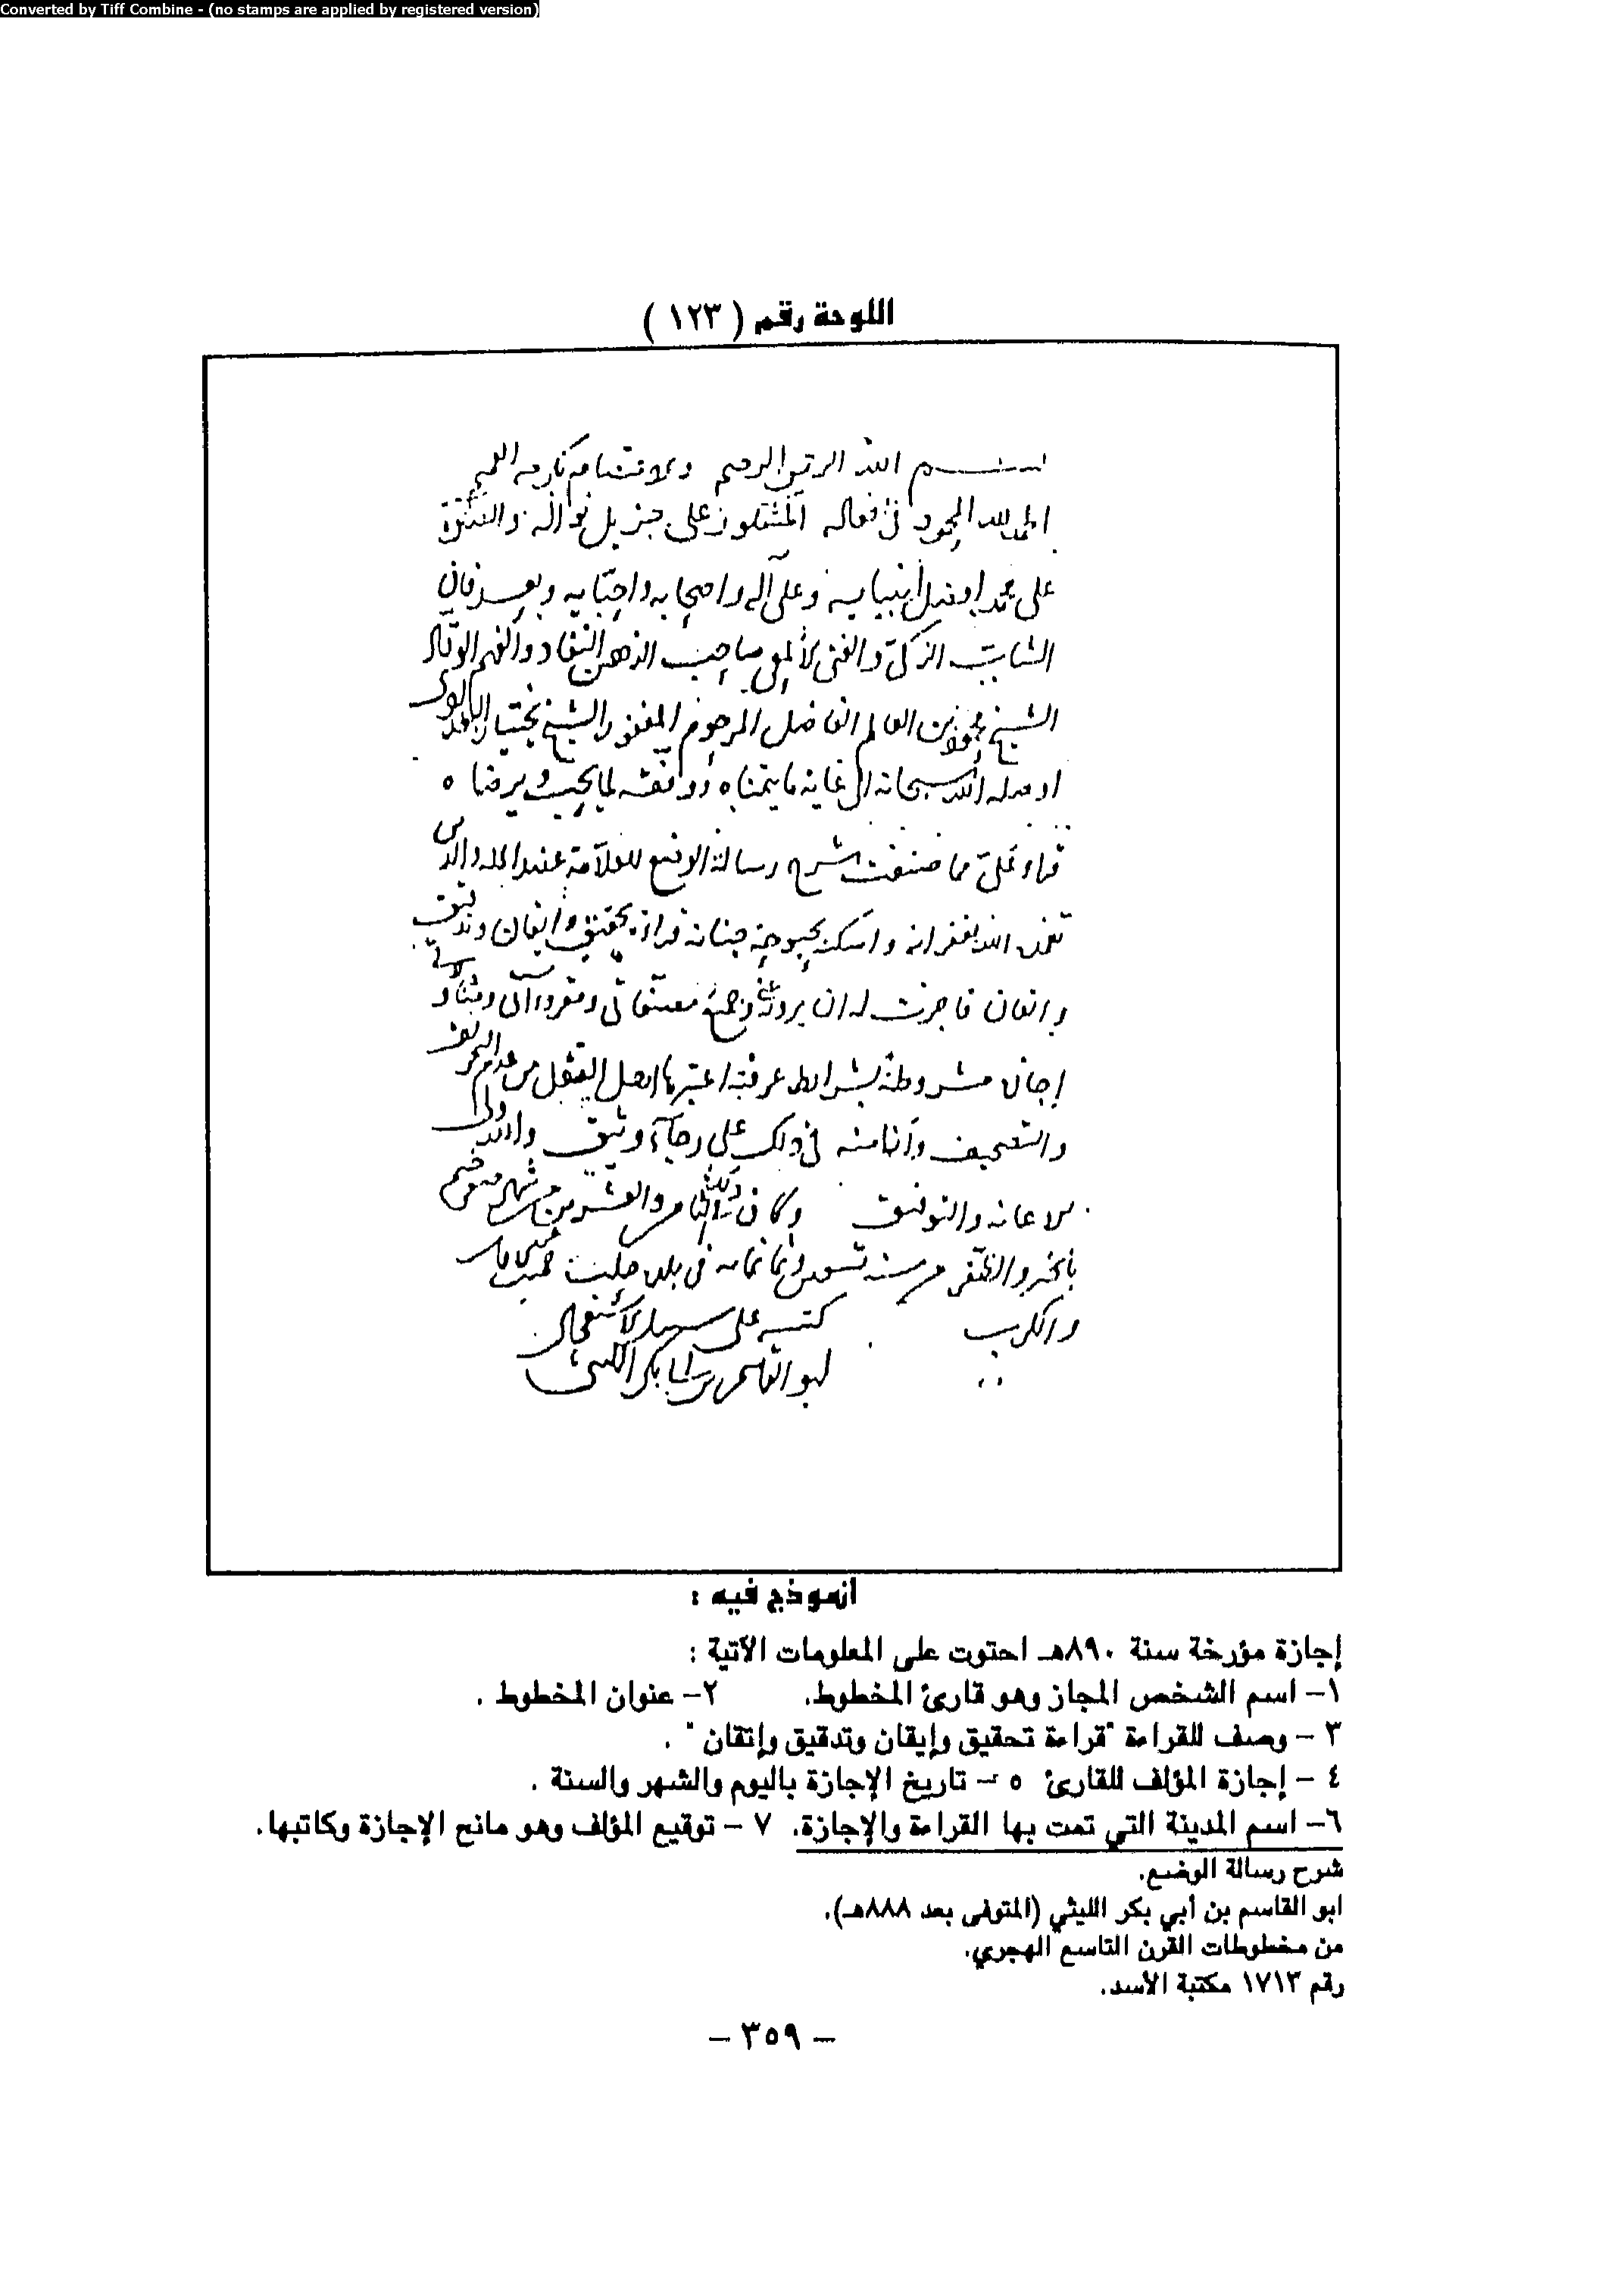 Converted by Tiff Combine - (no stamps are applied by registered version)
اللوحة رقم ( ١٢٣ )
بسم الله الرحمن الرحيم
الحمد لله المحمود في فعاله المشكور على جزيل نواله والصلوة
على محمد افضل انبيايه وعلى آله واصحابه واحبّايه وبعد فان
الشاب الزكيّ والفتى الالمعي صاحب الذهن النقاد والفهم الوقاد
الشيخ محمود بن العالم الفاضل المرحوم المغفور الشيخ بختيار
اوصله الله سبحانه الى غاية ما يتمناه ووفقه لما يحب ويرضاه
قراء عليّ مما صنفت شرح رسالة الوضع للعلامة عضد الملة والدين
تغمده الله بغفرانه واسكنه بحبوحة جنانه قراءة تحقيق وايقان وتدقيق
واتقان فاجزت له ان يروي عني جميع مصنفاتي ومقروءاتي
إجازة مشروطة بشرايط عرفية اعتبرها اهل النقل من عدم التحريف
والتصحيف وأنا منه في ذلك على رجآء وثيق والله ولي
الاعانة والتوفيق وكان ذلك في الثامن والعشرين من شهر صفر ختم
بالخير والظفر من سنة تسعين وثمانمايه في بلدة حلب
والكرب كتبه على سبيل الاستعجال
ابو القاسم بن ابي بكر الليثي
انموذج فيه :
إجازة مؤرخة سنة ٨٩٠هـ احتوت على المعلومات الآتية :
١- اسم الشخص المجاز وهو قارئ المخطوط. ٢- عنوان المخطوط .
٣ - وصف للقراءة "قراءة تحقيق وإيقان وتدقيق وإتقان" .
٤ - إجازة المؤلف للقارئ ٥ - تاريخ الإجازة باليوم والشهر والسنة .
٦- اسم المدينة التي تمت بها القراءة والإجازة. ٧ - توقيع المؤلف وهو مانح الإجازة وكاتبها.
شرح رسالة الوضع.
ابو القاسم بن أبي بكر الليثي (المتوفى بعد ٨٨٨هـ).
من مخطوطات القرن التاسع الهجري.
رقم ١٧١٣ مكتبة الأسد.
- ٣٥٩ -